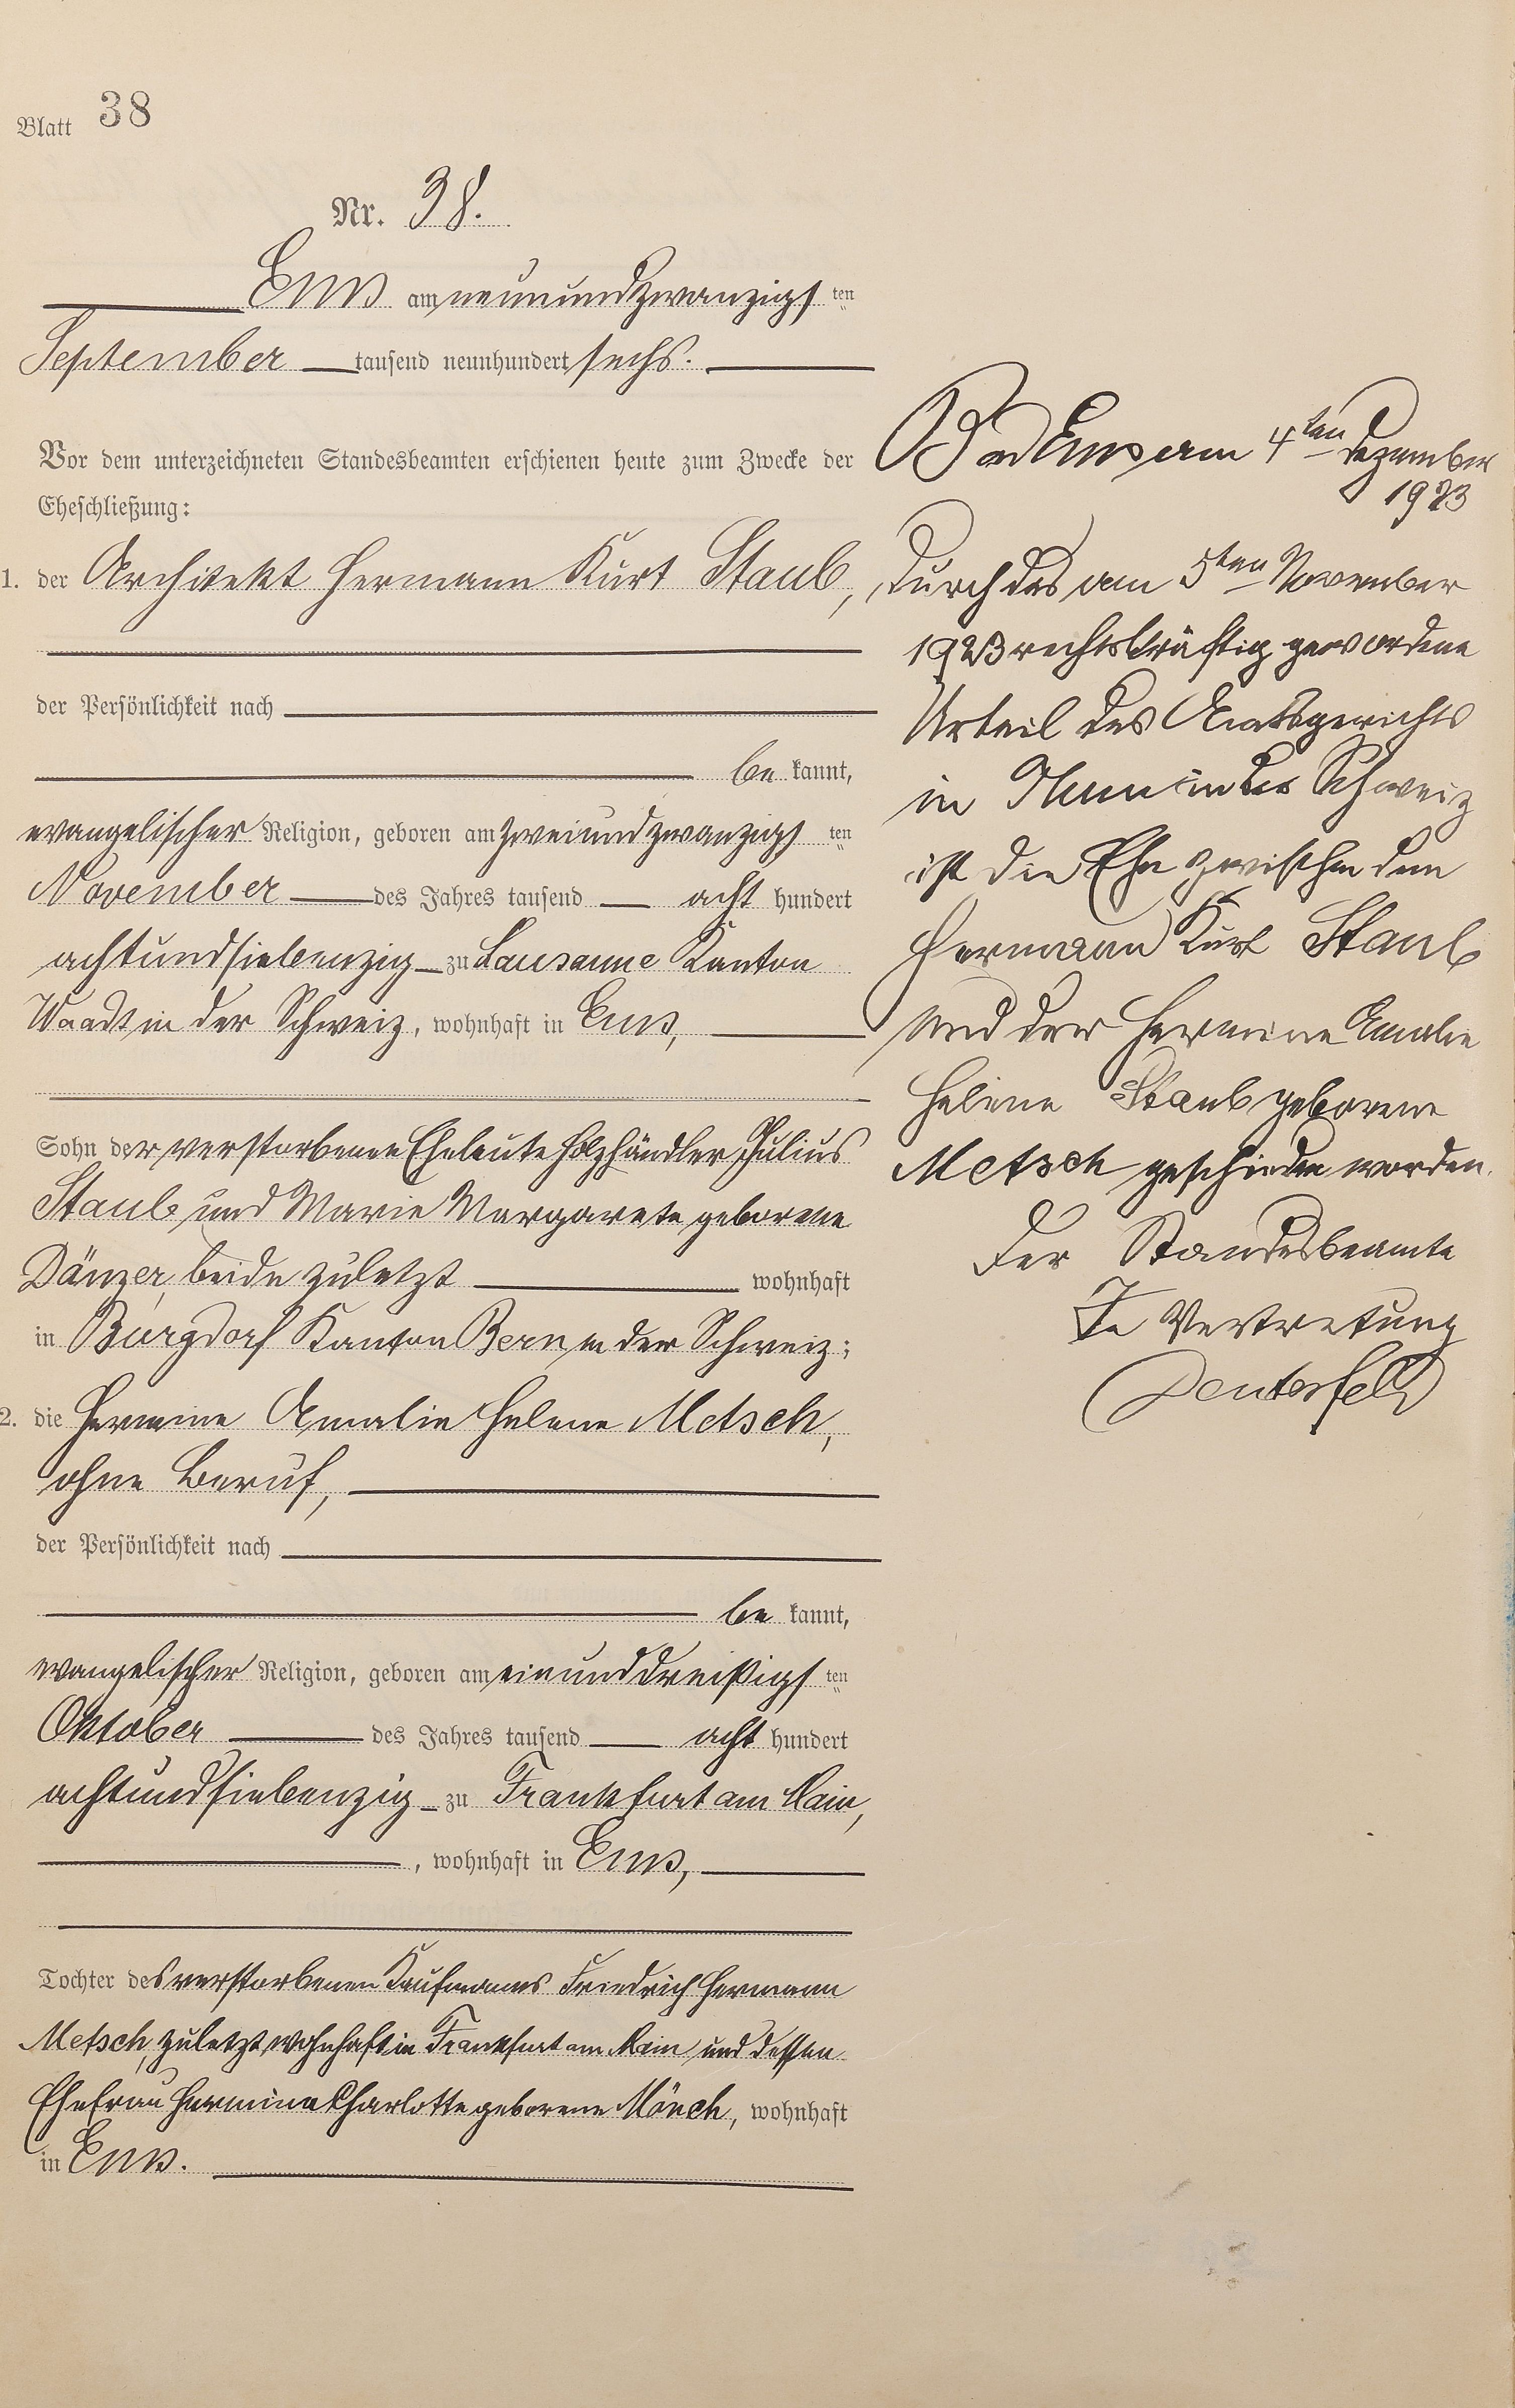 Blatt 38
Nr. 38.
Ems am neunundzwanzigsten
September tausend neunhundert sechs.
Vor dem unterzeichneten Standesbeamten erschienen heute zum Zwecke der
Eheschließung:
1. der Architekt Hermann Kurt Staub,
der Persönlichkeit nach
be kannt,
evangelischer Religion, geboren am zweiundzwanzigsten
November des Jahres tausend acht hundert
achtundsiebenzig zu Lausanne Kanton
Waadt in der Schweiz, wohnhaft in Ems,
Sohn der verstorbenen Eheleute Holzhändler Julius
Staub und Marie Margarete geborene
Dänzer, beide zuletzt wohnhaft
in Burgdorf Kanton Bern in der Schweiz;
2. die Hermine Amalie Helene Metsch,
ohne Beruf,
der Persönlichkeit nach
be kannt,
evangelischer Religion, geboren am einunddreißigsten
Oktober des Jahres tausend acht hundert
achtundsiebenzig zu Frankfurt am Main,
, wohnhaft in Ems,
Tochter des verstorbenen Kaufmanns Friedrich Hermann
Metsch, zuletzt wohnhaft in Frankfurt am Main und dessen
Ehefrau Hermine Charlotte geborene Mönch, wohnhaft
in Ems.
Bad Ems am 4ten Dezember
1923
Durch das am 5ten November
1923 rechtskräftig gewordene
Urteil des Amtsgerichts
in in der Schweiz
ist die Ehe zwischen dem
Hermann Kurt Staub
und der Hermine Amalie
Helene Staub geborene
Metsch geschieden worden.
Der Standesbeamte
In Vertretung